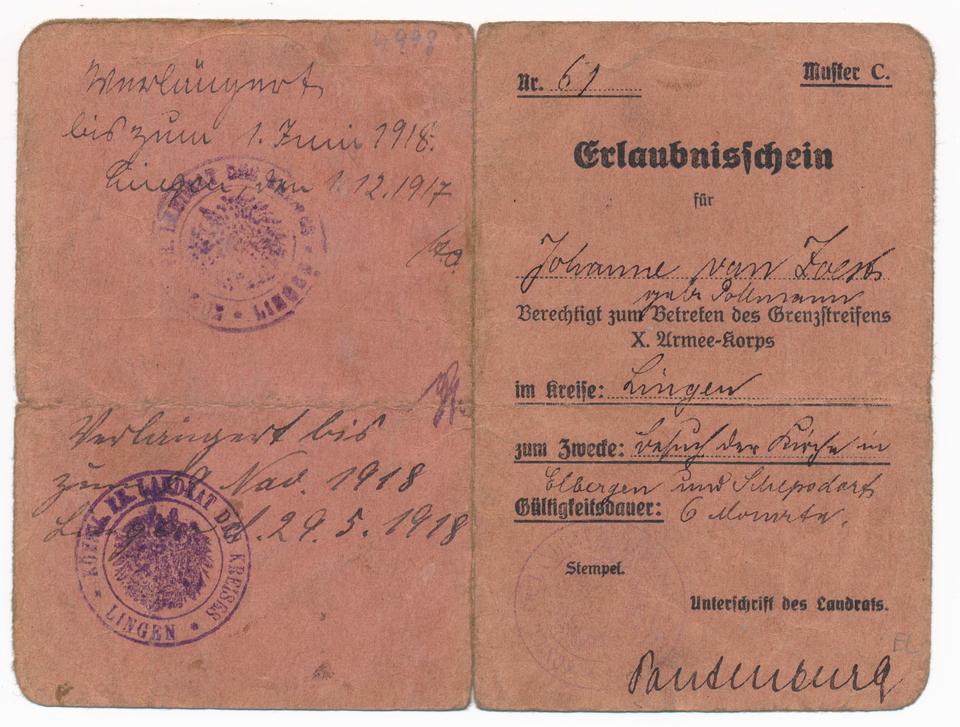 4998
Verlängert
bis zum 1. Juni 1918.
Lingen, den 1.12.1917
KÖNIGL. PR. LANDRAT DES KREISES * LINGEN *
Verlängert bis
zum Nov. 1918
Lingen d. 29.5.1918
KÖNIGL. PR. LANDRAT DES KREISES * LINGEN *
Nr. 61
Muster C.
Erlaubnisschein
für
Johanne van
geb. Pollmann
Berechtigt zum Betreten des Grenzstreifens
X. Armee-Korps
im Kreise: Lingen
zum Zwecke: Besuch der Kirche in
Elbergen und Schepsdorf
Gültigkeitsdauer: 6 Monate.
Stempel.
Unterschrift des Landrats.
Pantenburg
EL